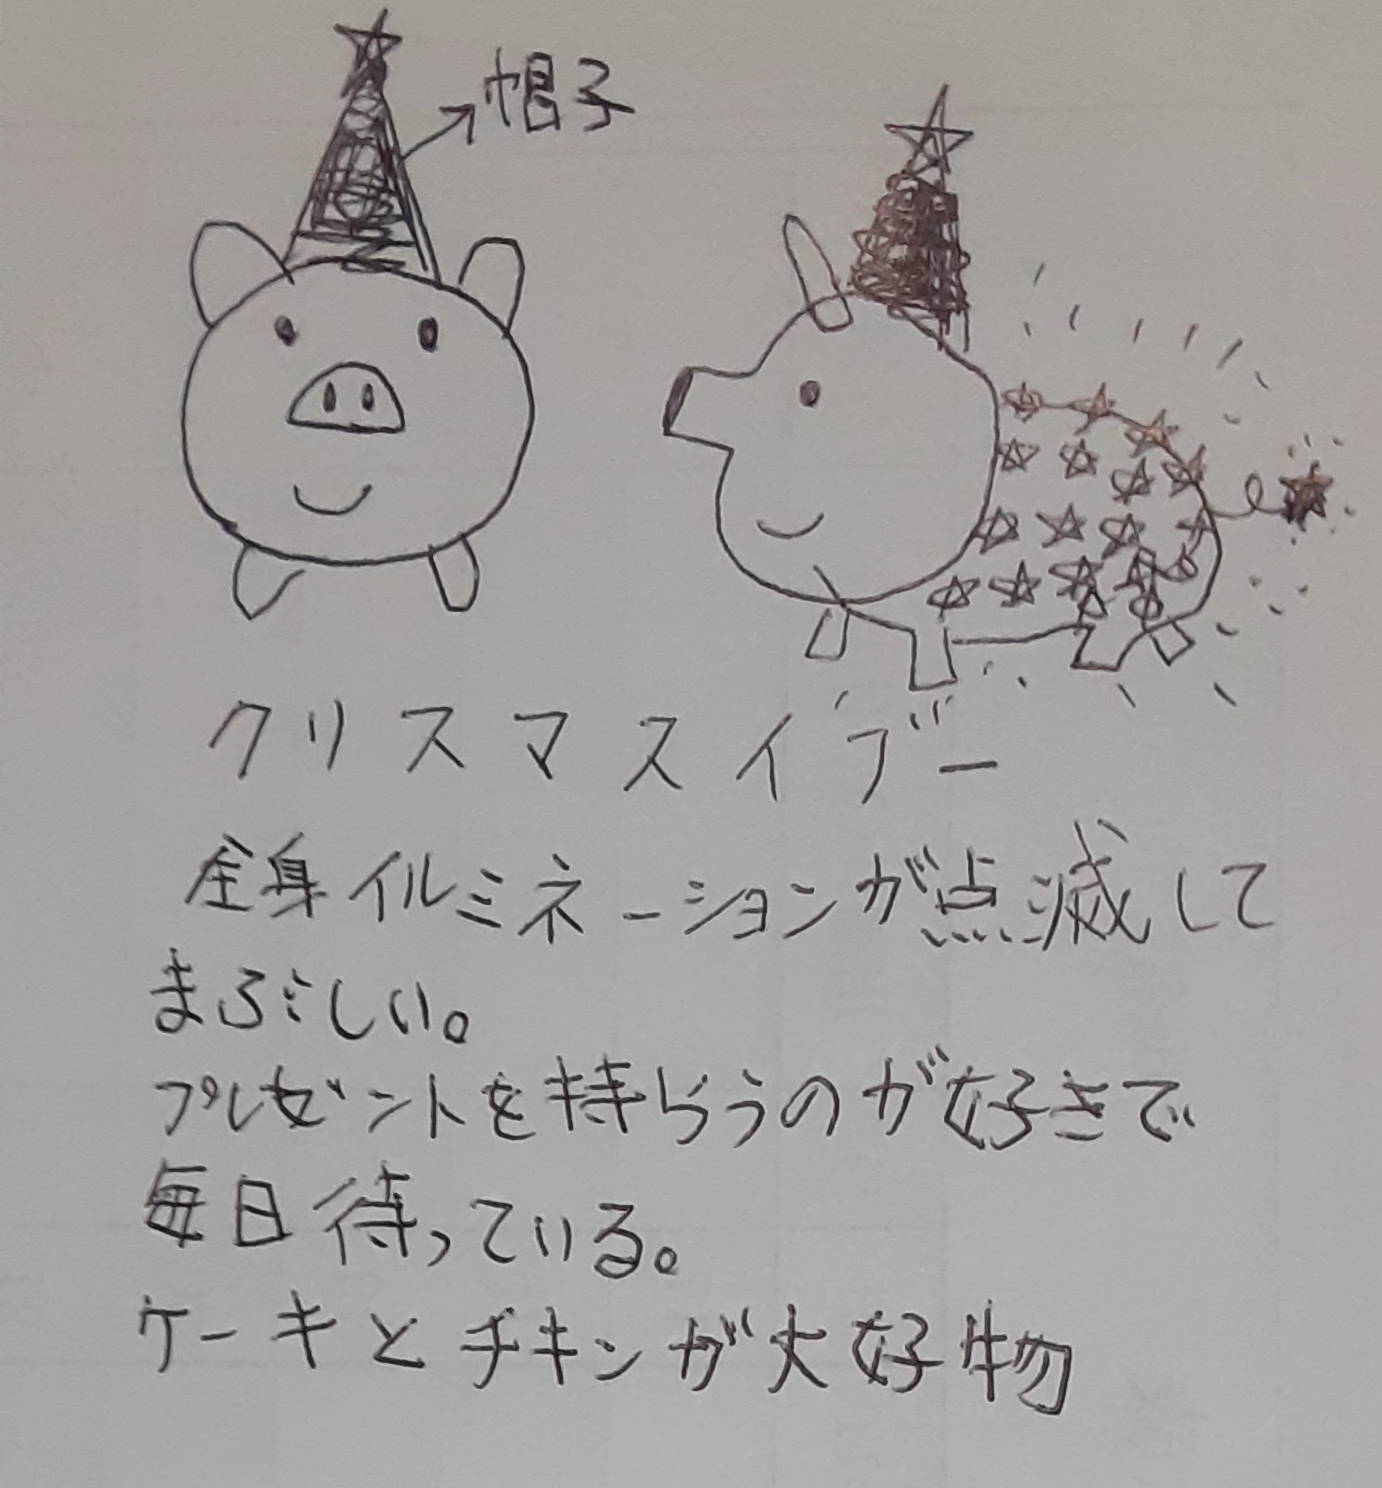 帽子
クリスマスイブー
全身イルミネーションが点滅して
まぶしい。
プレゼントを持らうのが好きで
毎日待っている。
ケーキとチキンが大好物